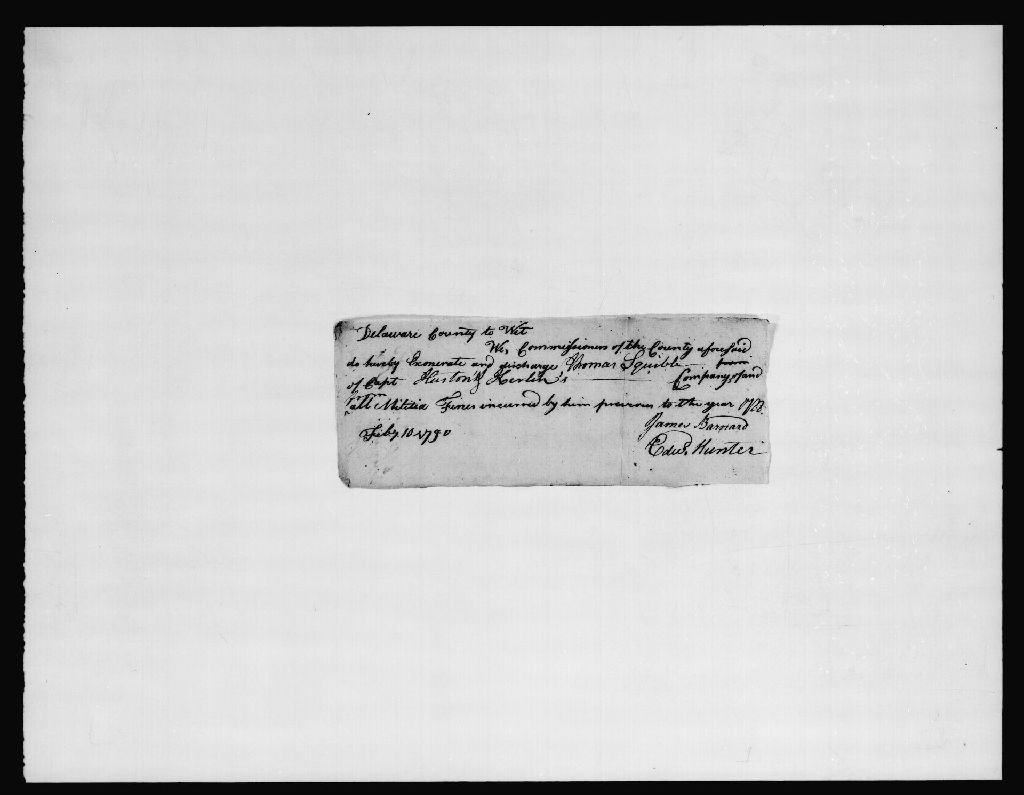 Delaware County to Wit
We, Commissioners of the County aforesaid
do hereby Exonerate and discharge Thomas Squibb from
of Capt Huston & Kerlin's Company of and
all Militia Fines incurred by him previous to the year 1788.
James Barnard
Feby 10 1790
Edwd. Hunter